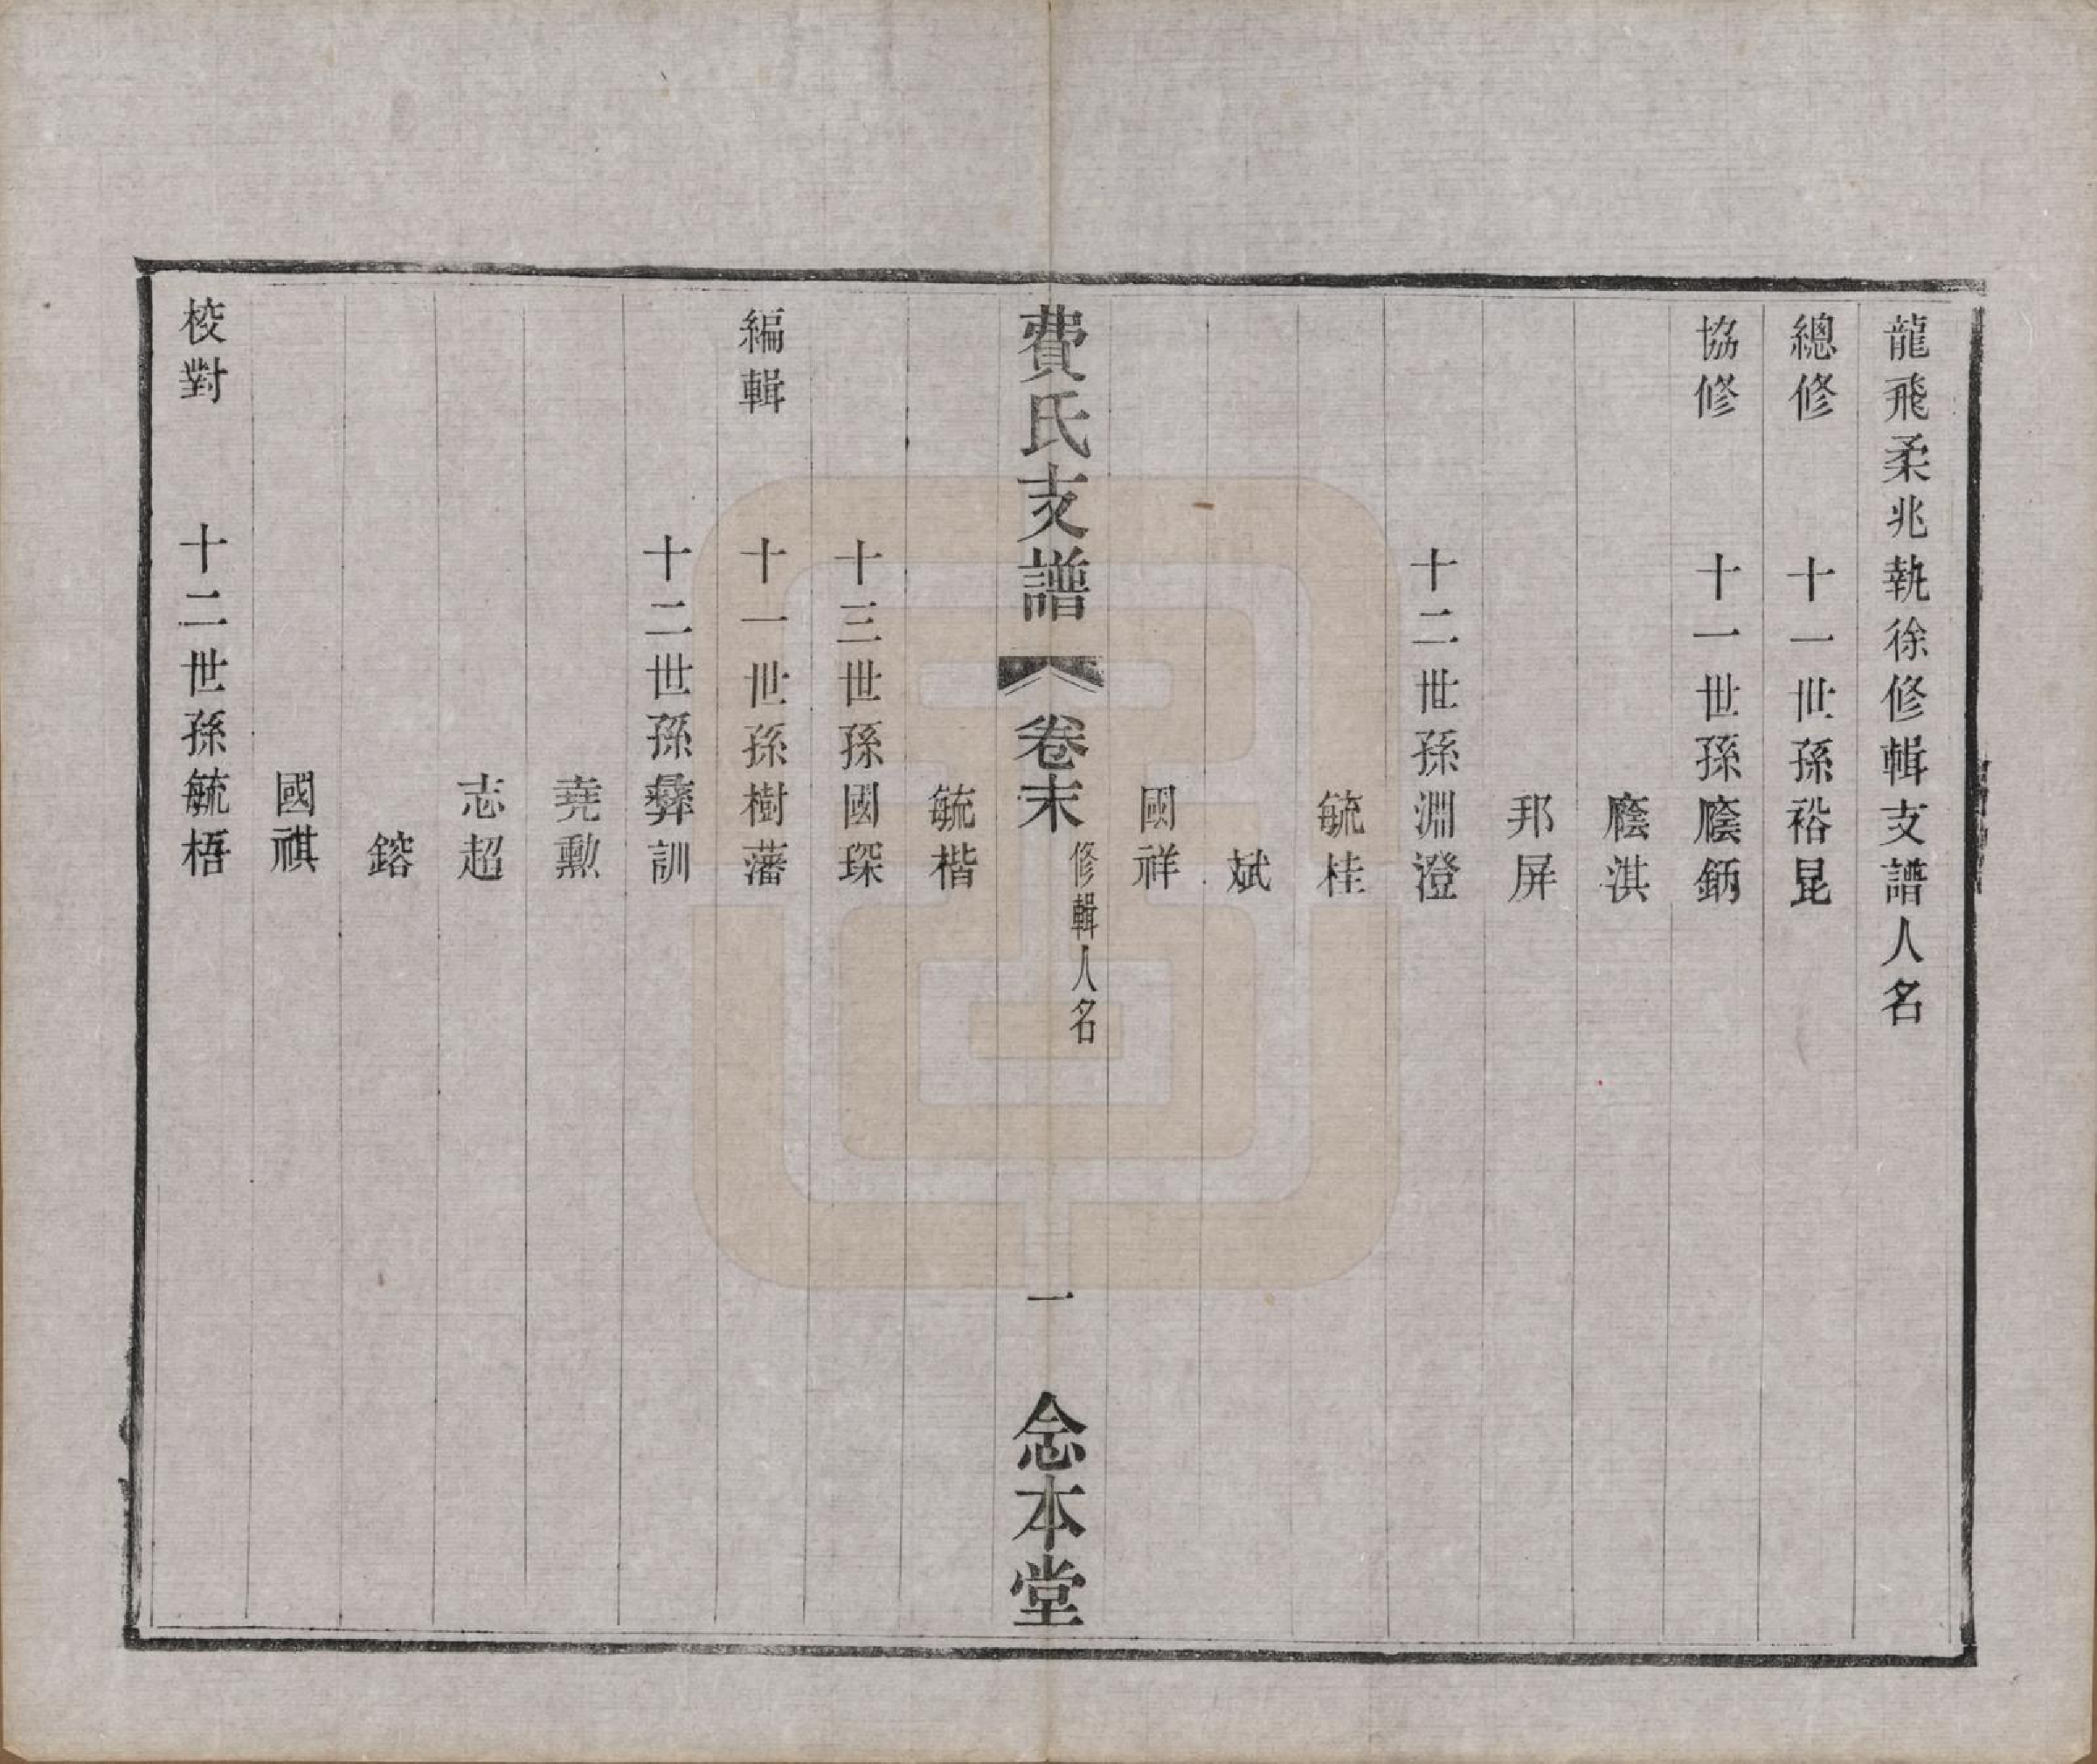 龍飛柔兆執徐修輯支譜人名
總修　十一世孫裕昆
協修　十一世孫廕鈵
廕淇
邦屏
十二世孫淵澄
毓桂
斌
國祥
費氏支譜　卷末　修輯人名　一　念本堂
毓楷
十三世孫國琛
編輯　十一世孫樹藩
十二世孫彝訓
堯勲
志超
鎔
國祺
校對　十二世孫毓梧